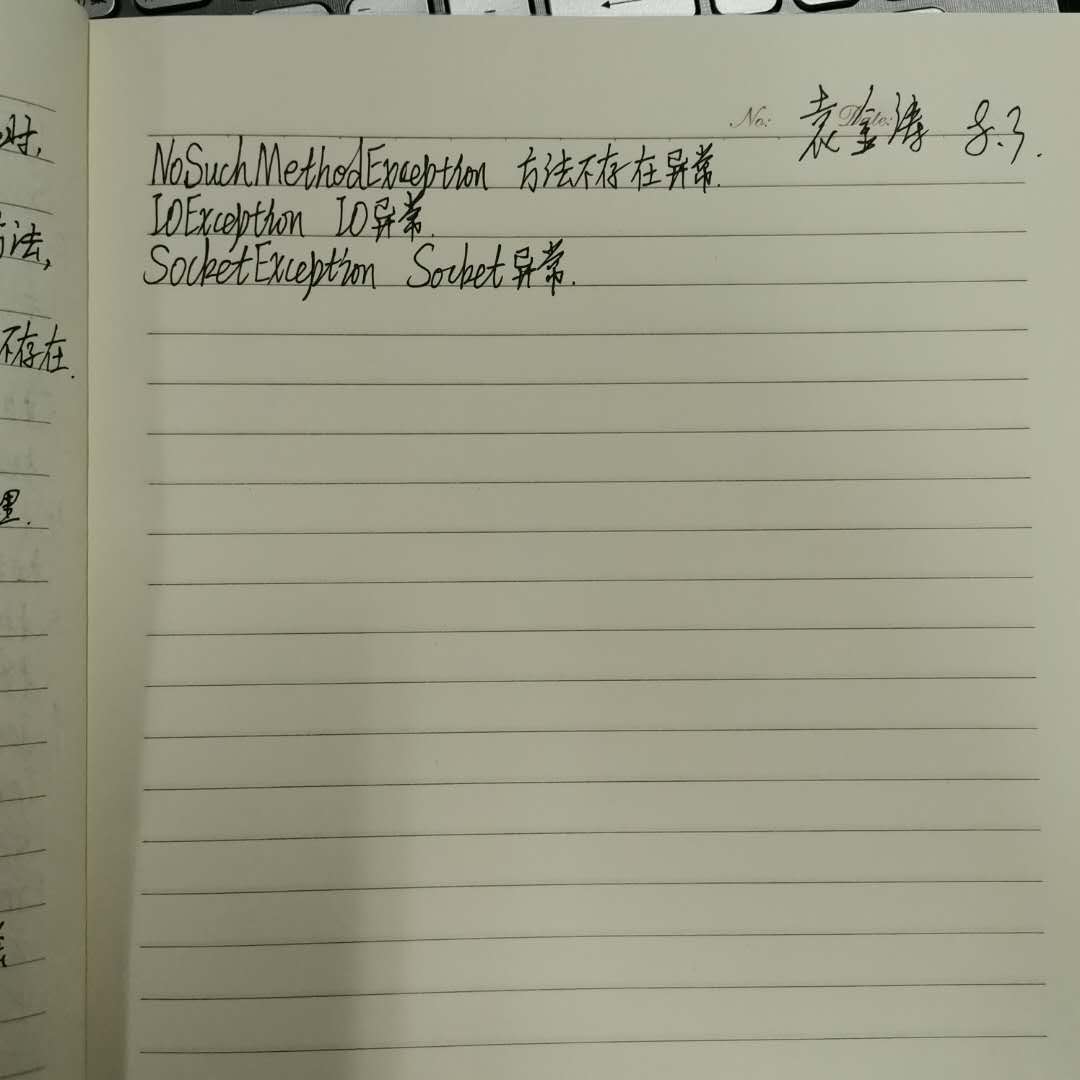 No: Date: 袁金涛 8.3.
NoSuchMethodException 方法不存在异常.
IOException IO异常.
SocketException Socket异常.
时,
方法,
不存在.
里.